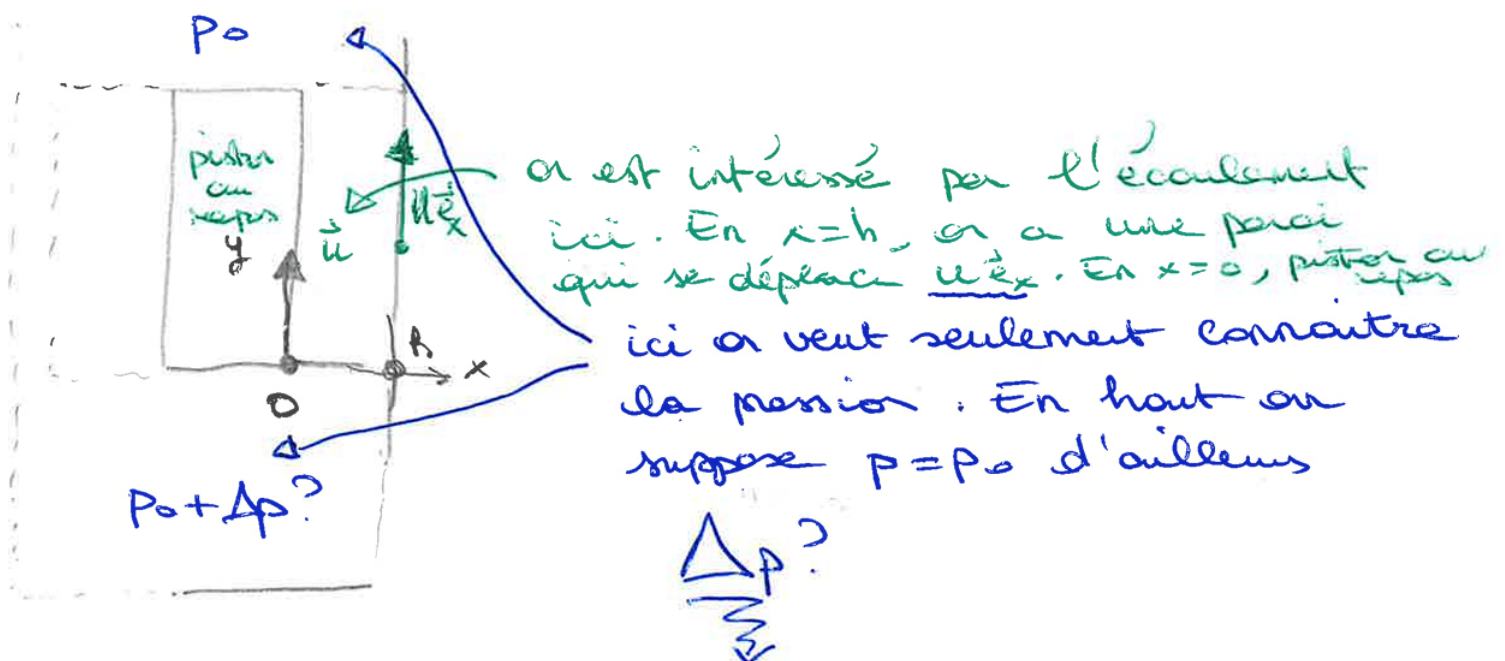 p₀
piston
au
repos
y
u⃗
u e⃗ₓ
on est intéressé par l'écoulement
ici. En x=h, on a une paroi
qui se déplace u e⃗ₓ. En x=0, piston au
repos
h
x
O
ici on veut seulement connaître
la pression. En haut on
suppose p=p₀ d'ailleurs
p₀+Δp?
Δp?